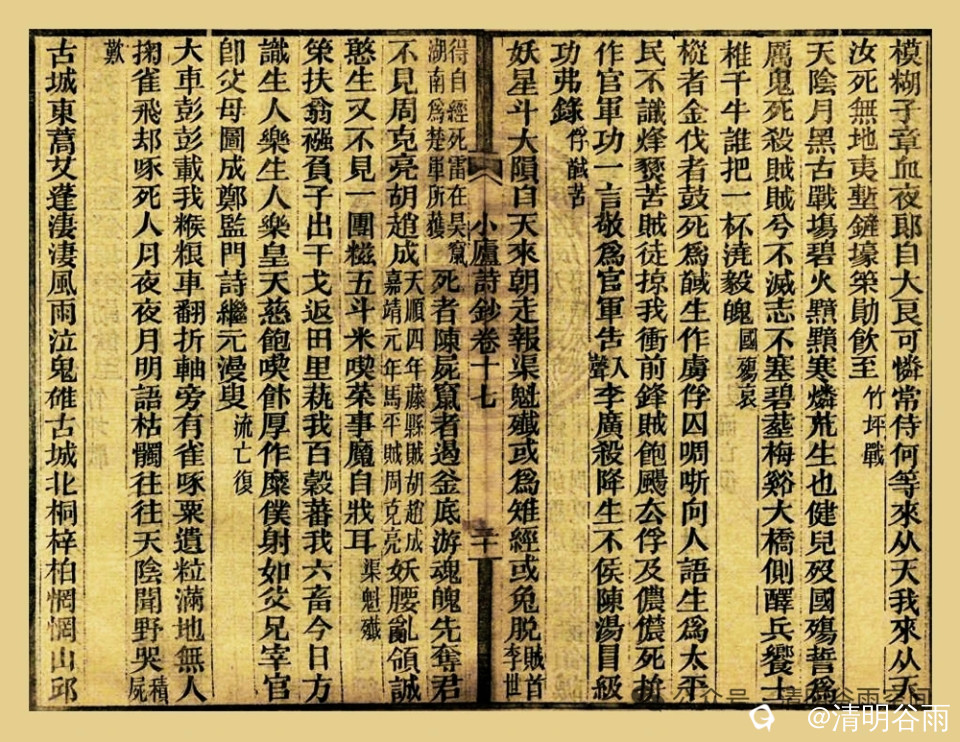 模糊子章血夜郎自大良可憐常侍何等來从天我來从天
汝死無地夷塹鏟壕築勛飲至 竹坪戰
天陰月黑古戰場碧火顯顯寒燐荒生也健兒歿國殤誓爲
厲鬼死殺賊賊兮不滅志不塞碧 梅谿大橋側釃兵饗士
椎千牛誰把一杯澆毅魄 國殤哀
摐者金伐者鼓死爲馘生作虜俘囚啁哳向人語生爲太平
民不識烽燹苦賊徒掠我衝前鋒賊飽颺去俘及儂儂死拚
作官軍功一言敬爲官軍告入聲李廣殺降生不侯陳湯冒級
功弗錄 俘馘苦
妖星斗大隕自天來朝走報渠魁殲或爲雉經或兔脫賊首李世
小廬詩鈔卷十七
二十一
得自經死雷在昊竄湖南爲楚軍所獲死者陳屍竄者遏釜底游魂魄先奪君
不見周克亮胡趙成天順四年藤縣賊胡趙成嘉靖元年馬平賊周克亮妖腰亂領誠
憨生又不見一團糍五斗米喫菜事魔自戕耳 渠魁殲
策扶翁襁負子出干戈返田里蓺我百穀蕃我六畜今日方
識生人樂生人樂皇天慈飽喫餅厚作糜僕射如父兄宰官
卽父母圖成鄭監門詩繼元漫叟 流亡復
大車彭彭載我糇粻車翻折軸旁有雀啄粟遺粒滿地無人
掬雀飛却啄死人肉夜夜月明語枯髑往往天陰聞野哭積屍
歎
古城東蒿艾蓬淒淒風雨泣鬼雄古城北桐梓柏惘惘山邱
公众号·清明谷雨空间
@清明谷雨